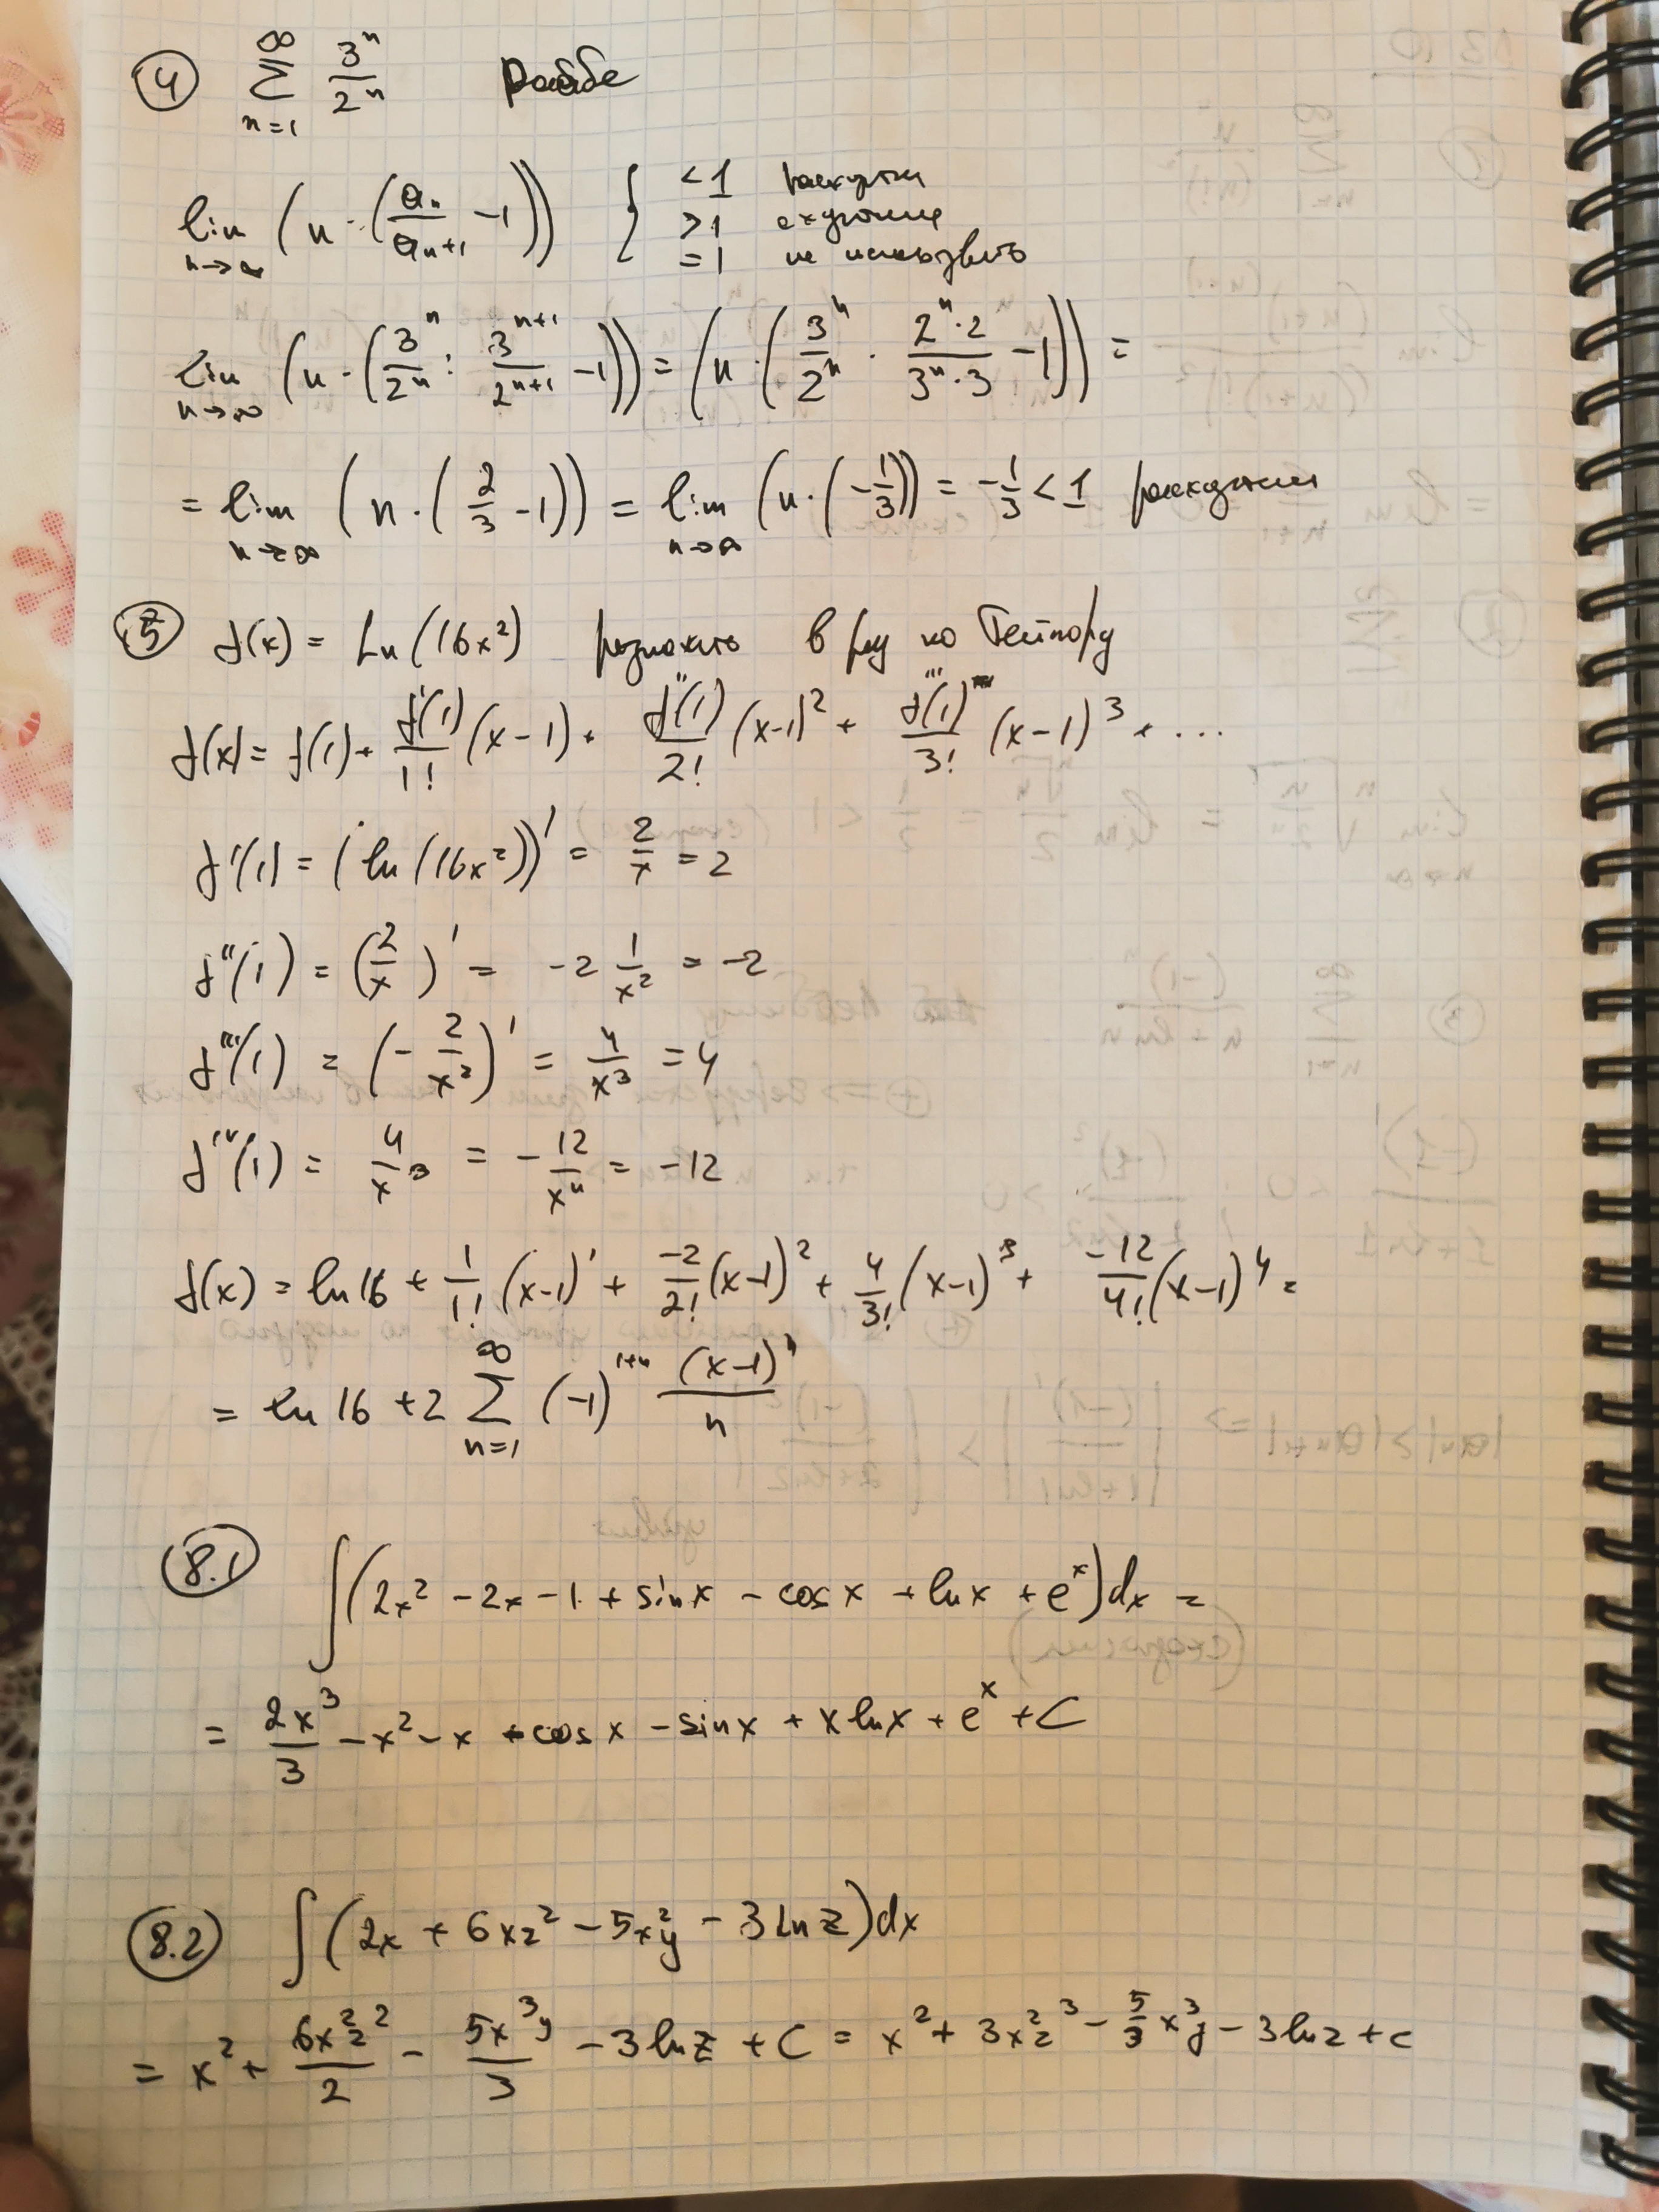 ④ ∑_{n=1}^{∞} 3^n/2^n Раабе
lim_{n→∞} (n·(a_n/a_{n+1} −1)) { <1 расходится
>1 сходится
=1 не использовать
lim_{n→∞} (n·(3^n/2^n : 3^{n+1}/2^{n+1} −1)) = (n·(3^n/2^n · 2^n·2/3^n·3 −1)) =
= lim_{n→∞} (n·(2/3 −1)) = lim_{n→∞} (n·(−1/3)) = −1/3 < 1 расходится
⑤ f(x) = Ln(16x²) разложить в ряд по Тейлору
f(x) = f(1) + f'(1)/1! (x−1) + f''(1)/2! (x−1)² + f'''(1)/3! (x−1)³ + ...
f'(1) = (ln(16x²))' = 2/x = 2
f''(1) = (2/x)' = −2 1/x² = −2
f'''(1) = (−2/x²)' = 4/x³ = 4
f^{IV}(1) = 4/x³ = −12/x⁴ = −12
f(x) = ln16 + 1/1! (x−1)' + −2/2! (x−1)² + 4/3! (x−1)³ + −12/4! (x−1)⁴ =
= ln 16 + 2 ∑_{n=1}^{∞} (−1)^{1+n} (x−1)^n/n
8.1 ∫(2x² − 2x − 1 + sinx − cosx + lnx + e^x)dx =
= 2x³/3 − x² − x + cosx − sinx + x lnx + e^x + C
8.2 ∫(2x + 6xz² − 5x²y − 3Lnz)dx
= x² + 6x²z²/2 − 5x³y/3 − 3lnz + C = x² + 3x²z³ − 5/3 x³y − 3lnz + c